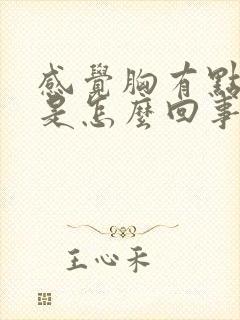 感覺胸有點
是怎麼回事
王心禾